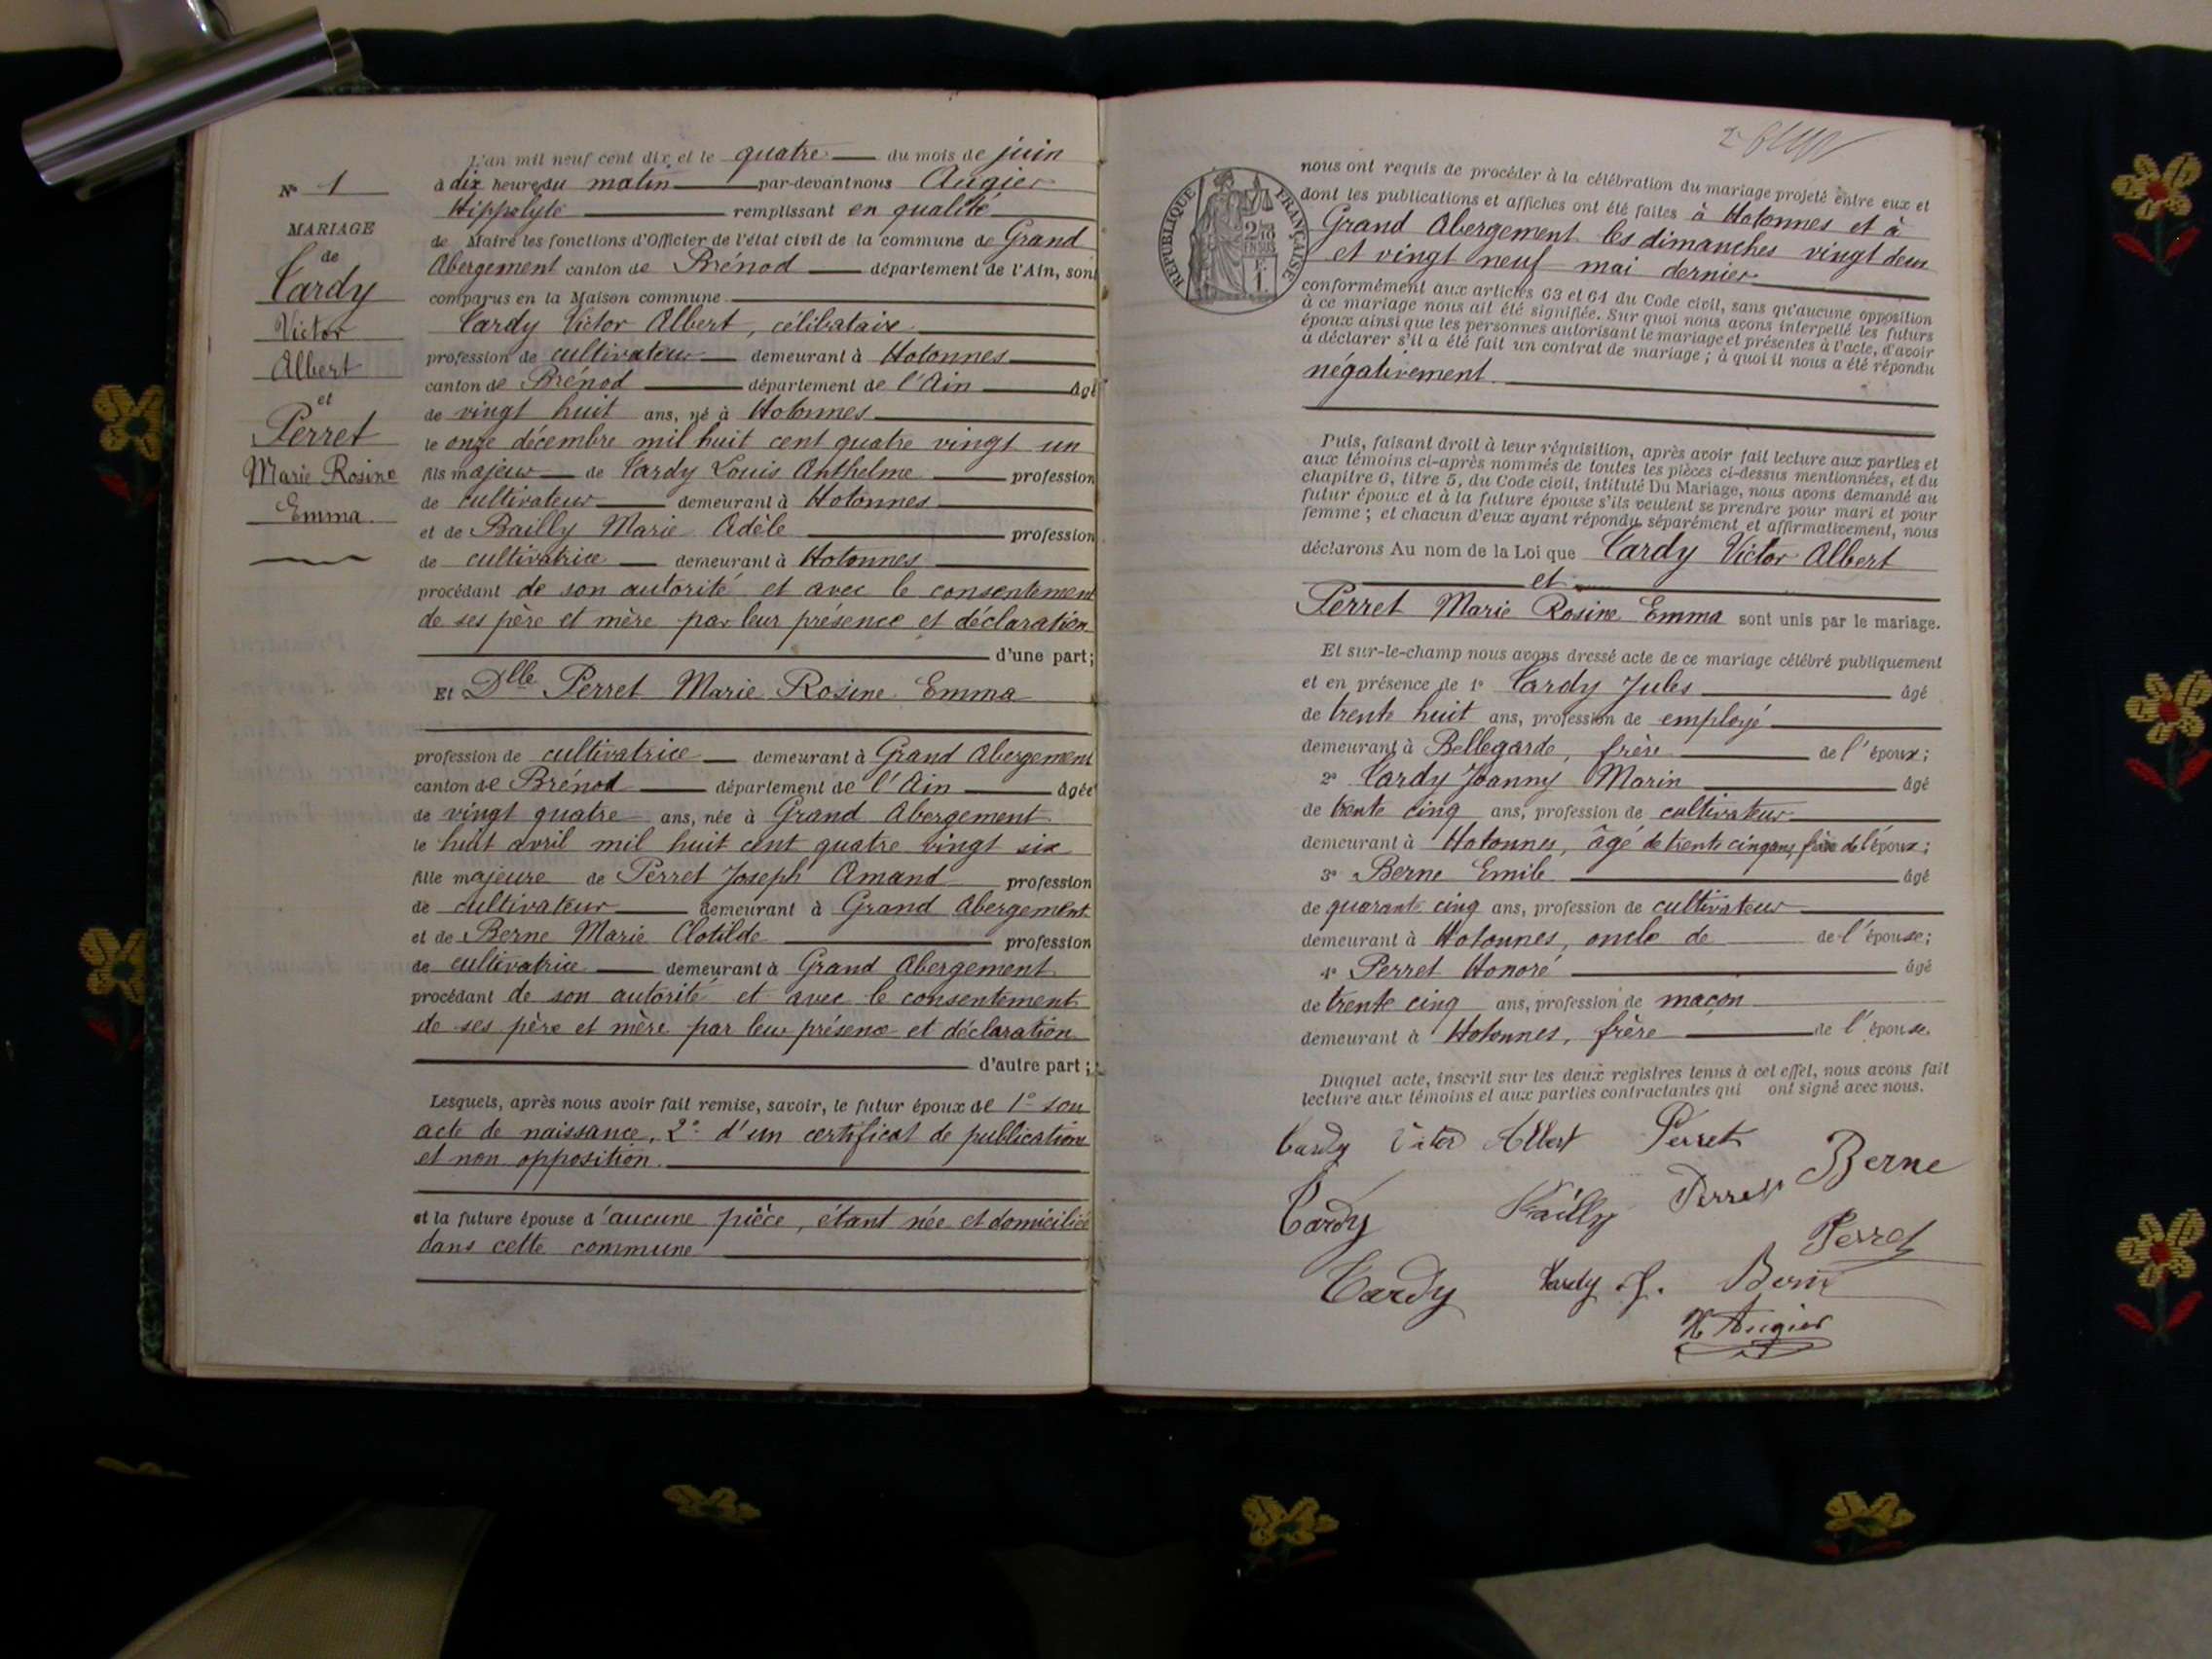 N° 1
MARIAGE
de
Tardy
Victor
Albert
et
Perret
Marie Rosine
Emma.
L'an mil neuf cent dix et le quatre du mois de juin
à dix heures du matin par-devant nous Augier
Hippolyte remplissant en qualité
de Maire les fonctions d'Officier de l'état civil de la commune de Grand
Abergement canton de Brénod département de l'Ain, sont
comparus en la Maison commune
Tardy Victor Albert, célibataire
profession de cultivateur demeurant à Hotonnes
canton de Brénod département de l'Ain âgé
de vingt huit ans, né à Hotonnes
le onze décembre mil huit cent quatre vingt un
fils majeur de Tardy Louis Anthelme profession
de cultivateur demeurant à Hotonnes
et de Bailly Marie Adèle profession
de cultivatrice demeurant à Hotonnes
procédant de son autorité et avec le consentement
de ses père et mère par leur présence et déclaration
d'une part;
Et Dlle Perret Marie Rosine Emma
profession de cultivatrice demeurant à Grand Abergement
canton de Brénod département de l'Ain âgée
de vingt quatre ans, née à Grand Abergement
le huit avril mil huit cent quatre vingt six
fille majeure de Perret Joseph Amand profession
de cultivateur demeurant à Grand Abergement
et de Berne Marie Clotilde profession
de cultivatrice demeurant à Grand Abergement
procédant de son autorité et avec le consentement
de ses père et mère par leur présence et déclaration
d'autre part;
Lesquels, après nous avoir fait remise, savoir, le futur époux de 1° son
acte de naissance, 2° d'un certificat de publications
et non opposition.
et la future épouse d'aucune pièce, étant née et domiciliée
dans cette commune
RÉPUBLIQUE FRANÇAISE
nous ont requis de procéder à la célébration du mariage projeté entre eux et
dont les publications et affiches ont été faites à Hotonnes et à
Grand Abergement les dimanches vingt deux
et vingt neuf mai dernier
conformément aux articles 63 et 64 du Code civil, sans qu'aucune opposition
à ce mariage nous ait été signifiée. Sur quoi nous avons interpellé les futurs
époux ainsi que les personnes autorisant le mariage et présentes à l'acte, d'avoir
à déclarer s'il a été fait un contrat de mariage; à quoi il nous a été répondu
négativement.
Puis, faisant droit à leur réquisition, après avoir fait lecture aux parties et
aux témoins ci-après nommés de toutes les pièces ci-dessus mentionnées, et du
chapitre 6, titre 5, du Code civil, intitulé Du Mariage, nous avons demandé au
futur époux et à la future épouse s'ils veulent se prendre pour mari et pour
femme; et chacun d'eux ayant répondu séparément et affirmativement, nous
déclarons Au nom de la Loi que Tardy Victor Albert
et
Perret Marie Rosine Emma sont unis par le mariage.
Et sur-le-champ nous avons dressé acte de ce mariage célébré publiquement
et en présence de 1° Tardy Jules âgé
de trente huit ans, profession de employé
demeurant à Bellegarde, frère de l'époux;
2° Tardy Joanny Marin âgé
de trente cinq ans, profession de cultivateur
demeurant à Hotonnes, âgé de trente cinq ans, frère de l'époux;
3° Berne Emile âgé
de quarante cinq ans, profession de cultivateur
demeurant à Hotonnes, oncle de de l'épouse;
4° Perret Honoré âgé
de trente cinq ans, profession de maçon
demeurant à Hotonnes, frère de l'épouse.
Duquel acte, inscrit sur les deux registres tenus à cet effet, nous avons fait
lecture aux témoins et aux parties contractantes qui ont signé avec nous.
Tardy Victor Albert Perret
Berne
Tardy Bailly Perret
Perret
Tardy Tardy J. Berne
H Augier